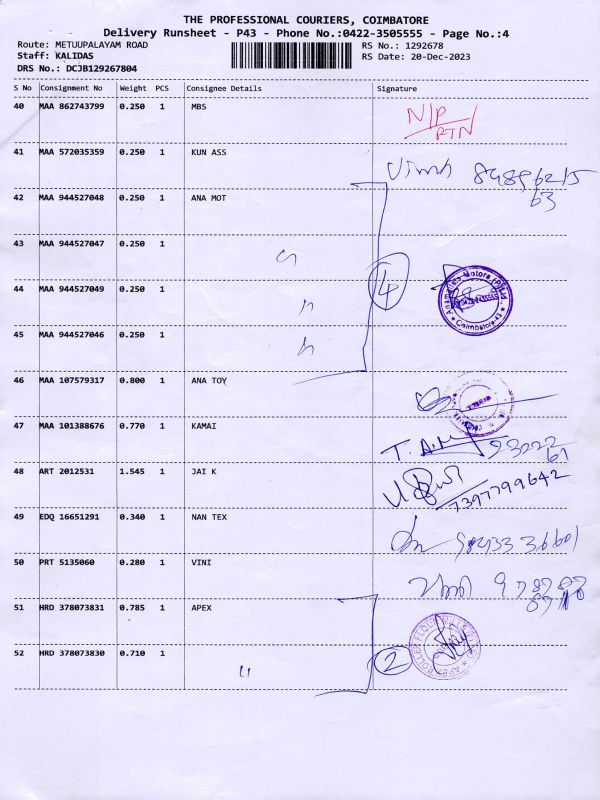 THE PROFESSIONAL COURIERS, COIMBATORE
Delivery Runsheet - P43 - Phone No.:0422-3505555 - Page No.:4
Route: METUUPALAYAM ROAD RS No.: 1292678
Staff: KALIDAS RS Date: 20-Dec-2023
DRS No.: DCJB129267804
S No Consignment No Weight PCS Consignee Details Signature
40 MAA 862743799 0.250 1 MBS N/P
RTN
41 MAA 572035359 0.250 1 KUN ASS
63
42 MAA 944527048 0.250 1 ANA MOT
43 MAA 944527047 0.250 1
44 MAA 944527049 0.250 1 4
Coimbatore-43
45 MAA 944527046 0.250 1
46 MAA 107579317 0.800 1 ANA TOY
47 MAA 101388676 0.770 1 KAMAI
48 ART 2012531 1.545 1 JAI K 7397799642
49 EDQ 16651291 0.340 1 NAN TEX
50 PRT 5135060 0.280 1 VINI
51 HRD 378073831 0.785 1 APEX
52 HRD 378073830 0.710 1 " 2